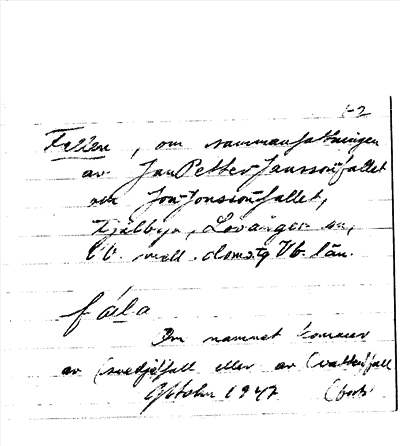 1-2
Fallen, om sammanfattningen
av JanPetter-Janssonfallet
och Jon-Jonssonfallet,
Fjälbyn, Lövånger sn,
mell. domsg Vb. län.
fála
Om namnet kommer
av (svedje)fall eller av (vatten)fall
Oktober 1947 (forts